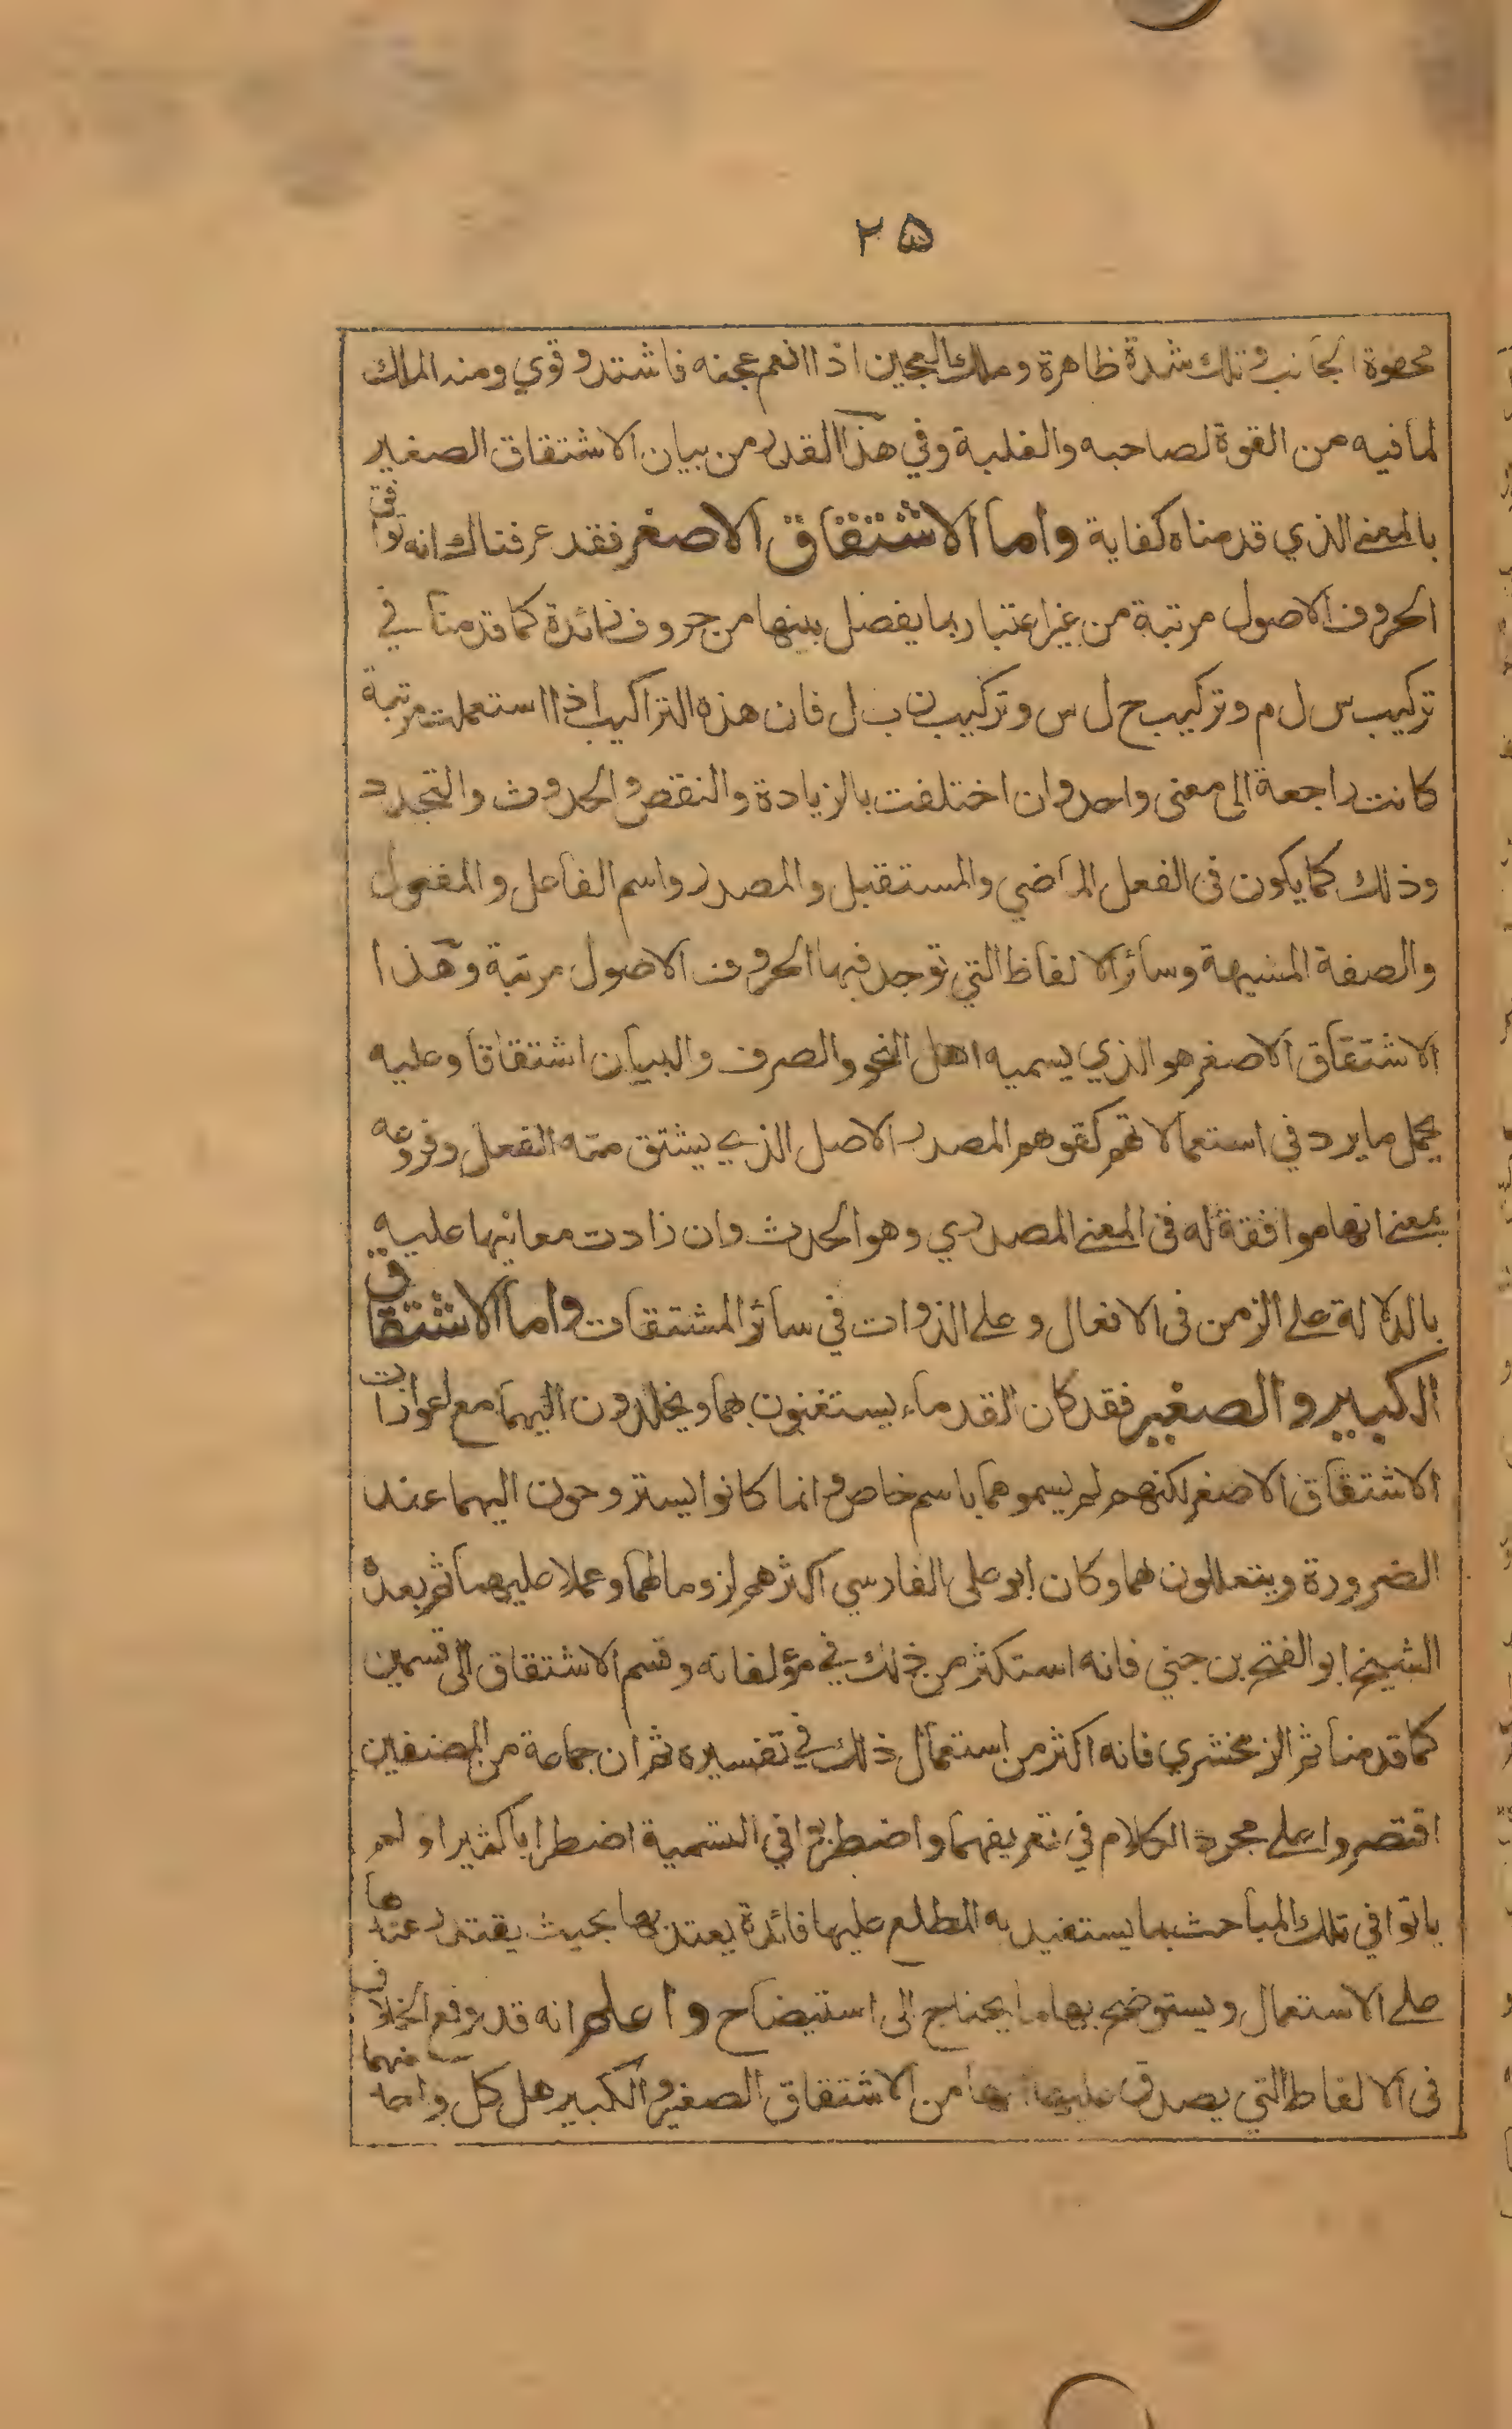 ٢٥
محفوة الجانب وتلك شدة ظاهرة وملك العجين اذا انعم عجنه فاشتد وقوي ومنه الملك
لما فيه من القوة لصاحبه والغلبة وفي هذا القدر من بيان الاشتقاق الصغير
بالمعنى الذي قدمناه كفاية واما الاشتقاق الاصغر فقد عرفناك انه توافق
الحروف الاصول مرتبة من غير اعتبار بما يفصل بينها من حروف زائدة كما قدمنا في
تركيب س ل م وتركيب ج ل س وتركيب ن ب ل فان هذه التراكيب اذا استعملت مرتبة
كانت راجعة الى معنى واحد وان اختلفت بالزيادة والنقص والحدوث والتجدد
وذلك كما يكون في الفعل الماضي والمستقبل والمصدر واسم الفاعل والمفعول
والصفة المشبهة وسائر الالفاظ التي توجد فيها الحروف الاصول مرتبة وهذا
الاشتقاق الاصغر هو الذي يسميه اهل النحو والصرف والبيان اشتقاقا وعليه
يحمل ما يرد في استعمالاتهم كقولهم المصدر الاصل الذي يشتق منه الفعل وفروعه
بمعنى انها موافقة له في المعنى المصدري وهو الحدث وان زادت معانيها عليه
بالدلالة على الزمن في الافعال وعلى الذوات في سائر المشتقات واما الاشتقاق
الكبير والصغير فقد كان القدماء يستغنون بهما ويخلدون اليهما مع اعواز
الاشتقاق الاصغر لكنهم لم يسموهما باسم خاص وانما كانوا يستروحون اليهما عند
الضرورة ويتعللون بهما وكان ابو علي الفارسي اكثرهم لزوما لهما وعملا عليهما ثم بعده
الشيخ ابو الفتح بن جني فانه استكثر من ذلك في مؤلفاته وقسم الاشتقاق الى قسمين
كما قدمنا ثم الزمخشري فانه اكثر من استعمال ذلك في تفسيره ثم ان جماعة من المصنفين
اقتصروا على مجرد الكلام في تعريفهما واضطربوا في التسمية اضطرابا كثيرا ولم
ياتوا في تلك المباحث بما يستفيد به المطلع عليها فائدة يعتد بها بحيث يقتدر عندها
على الاستعمال ويستوضح بها ما يحتاج الى استيضاح واعلم انه قد وقع الخلاف
في الالفاظ التي يصدق عليها من الاشتقاق الصغير والكبير هل كل واحد منهما